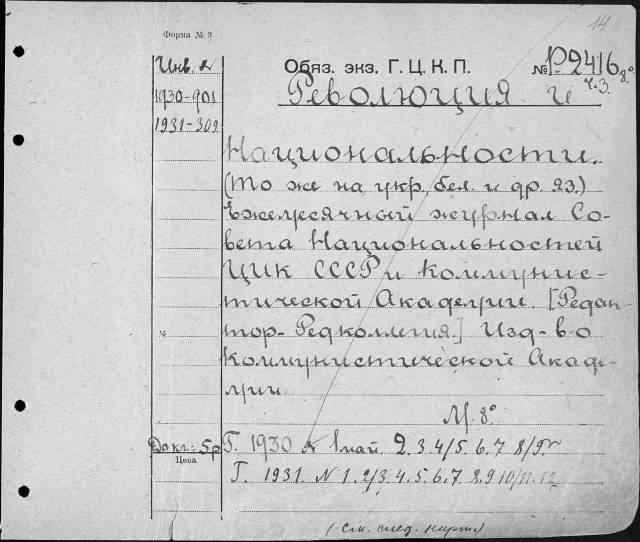 14
Форма № 3
Инв. №
1930-901
1931-309
Обяз. экз. Г. Ц. К. П.
№ Р2416 8°
ч.3.
Революция и
Национальности.
(То же на укр. бел. и др. яз.)
Ежемесячный журнал Со-
вета Национальностей
ЦИК СССР и Коммунис-
тической Академии. [Редак-
тор- Редколлегия.] Изд-в-о
№
Коммунистической Акаде-
мии.
М. 8°
5р
Цена
Г. 1930 № 1 май. 2. 3. 4/5. 6. 7 8/9.
Г. 1931. N 1. 2/3. 4. 5. 6. 7. 8. 9 10/11. 12
(См. след. карт.)